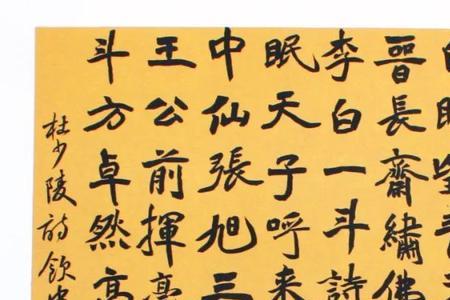 晉長齋繡佛
李白一斗詩
眠天子呼来
中仙張旭三
王公前揮毫
斗方卓然高
杜少陵詩飲中